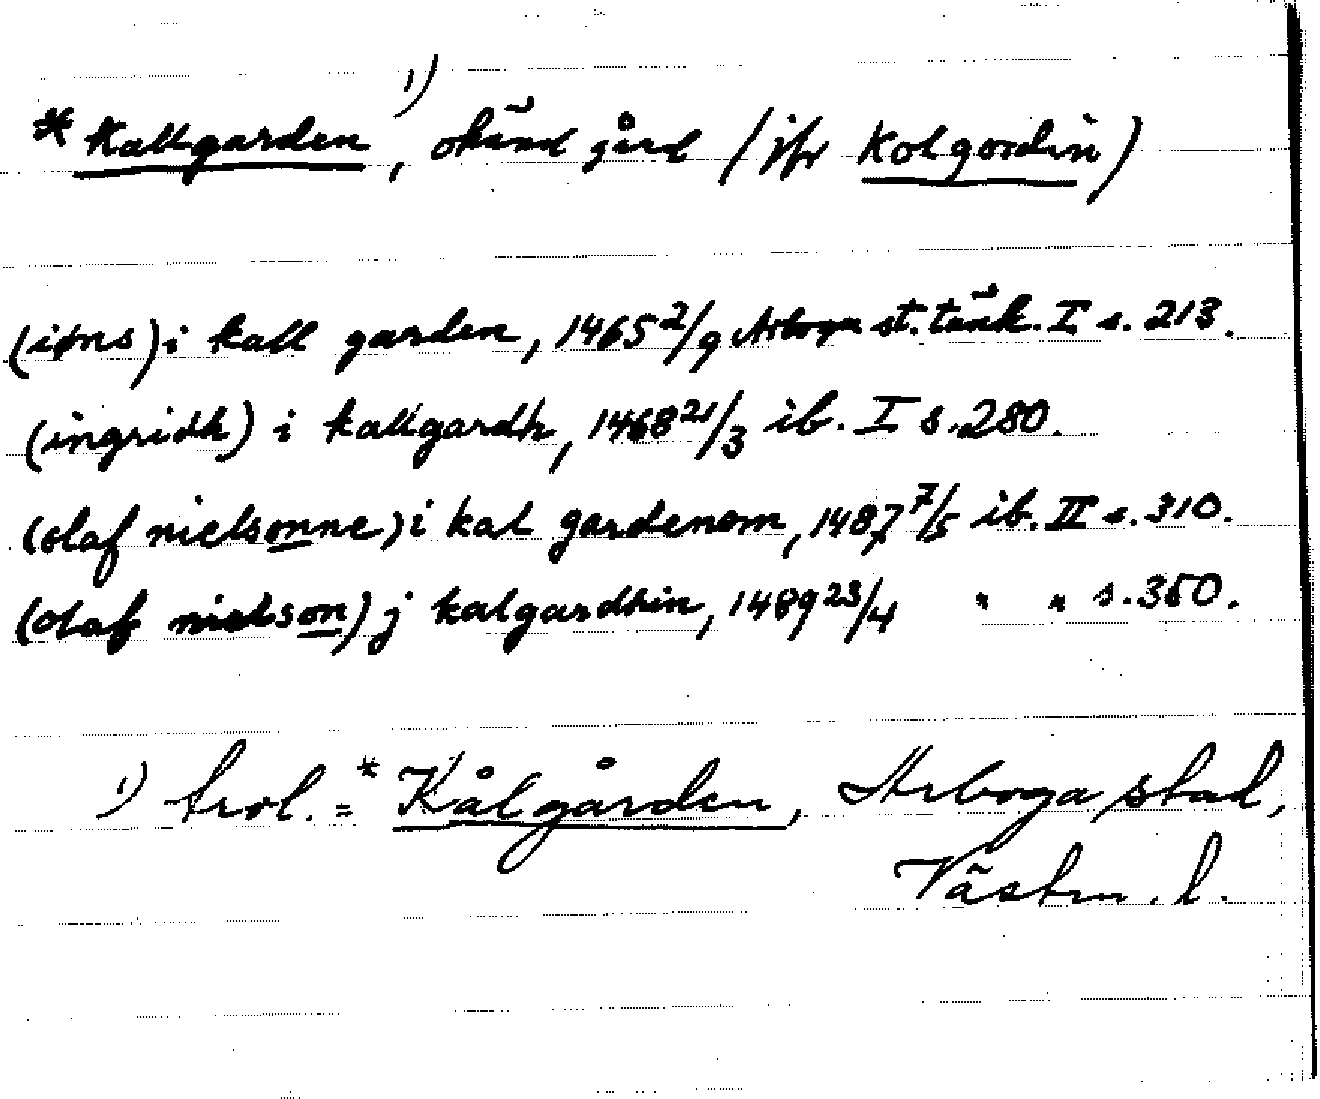 * Kallgarden 1), okänd gård (jfr Kolgordin)
(iøns) i kall garden, 1465 2/9 Arboga st. tänk. I s. 213.
(ingridh) i kallgardh, 1468 21/3 ib. I s. 280.
(olaf nielsonne) i kal gardenom, 1487 7/5 ib. II s. 310.
(olaf nielson) j kalgardhin, 1489 23/4 " " s. 350.
1) Trol. = * Kålgården, Arboga stad,
Västm. l.